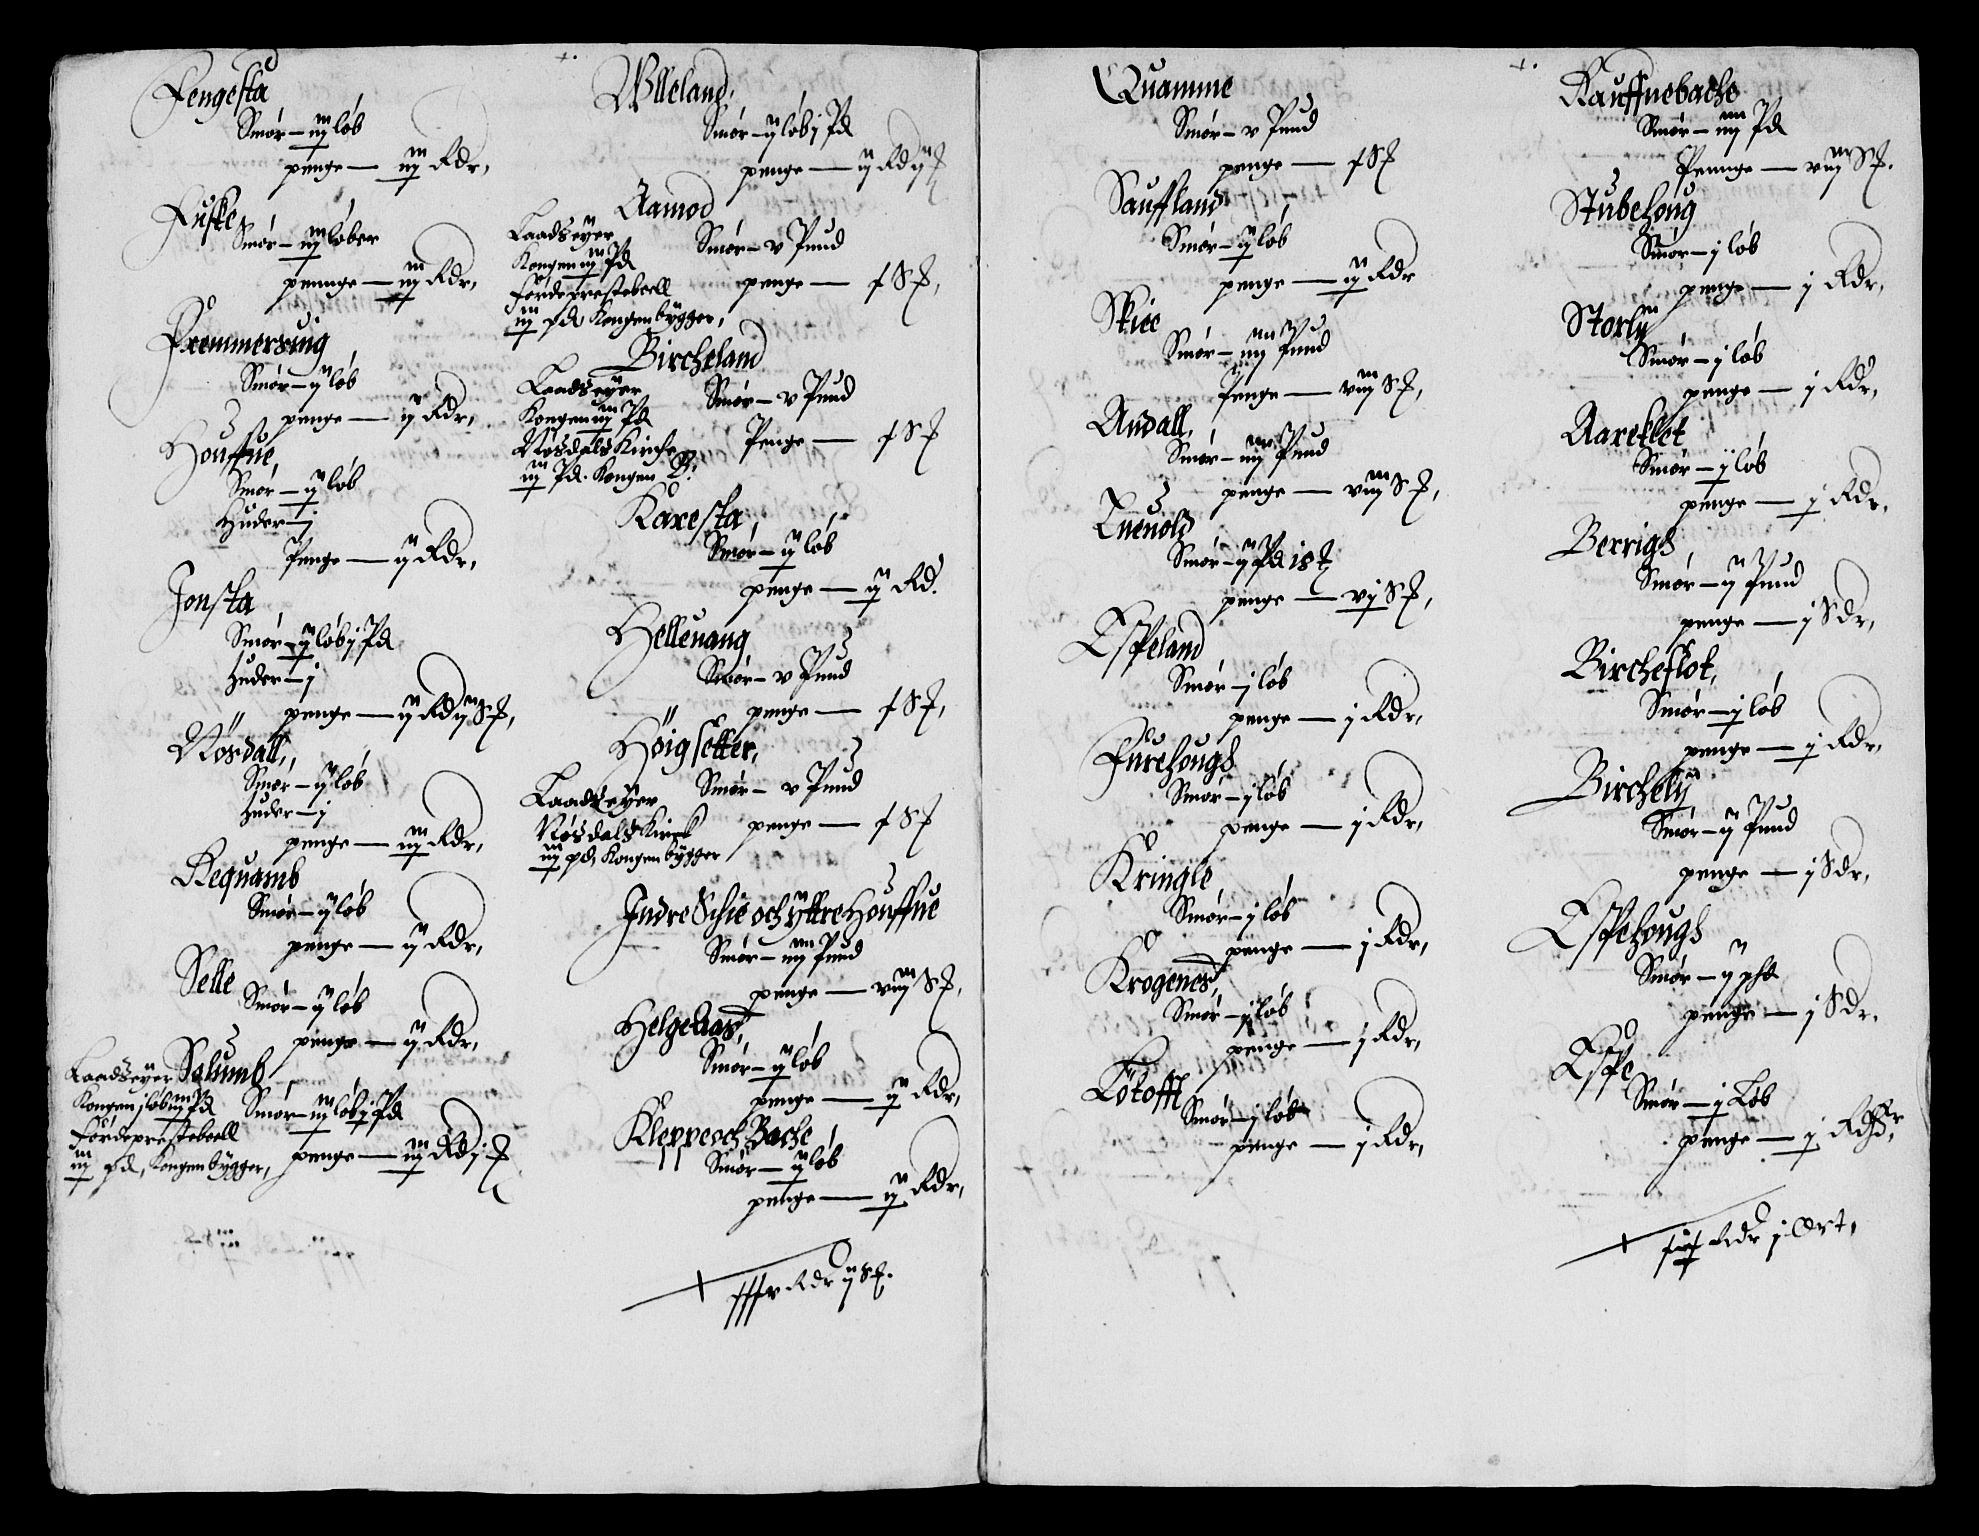 Fengesta
Smør – iij løb
penge — iij Rdr,
Fuske,
Smør – iij løber
pennge — iij Rdr,
Fremmersuig
Smør – ij løb
penge — ij Rdr,
Houffue,
Smør – ij løb
Huder – j
Penge — ij Rdr,
Jonsta
Smør – ij løb j Pd
huder – j
penge — ij Rd ij S ₰,
Nøsdall,
Smør – ij løb
huder – j
penge — iij Rdr,
Requamb
Smør – ij løb
penge — ij Rdr,
Selle
Smør – ij løb
penge — ij Rdr,
Solumb
Laadseyer
Kongen j løb iij Pd
Førdepresteboell
iij pd, Kongen bygger,
Smør – iij løb j Pd
penge — iij Rd j ₰
Wlleland,
Smør – ij løb j Pd
penge — ij Rd ij ₰
Aamod
Laadseyer
Kongen iij Pd
Førdepresteboell
iij pd Kongen bygger,
Smør – v Pund
penge — x S ₰,
Bircheland
Laadseyer
Kongen iij Pd
Nøsdals Kirche
iij Pd. Kongen B:
Smør – v Pund
Penge — x S ₰
Karesta,
Smør – ij løb
penge — ij Rd.
Hellenang
Smør – v Pund
penge — x S ₰,
Høigsetter,
Laadseyer
Nøsdals Kirck
iij pd, Kongen bygger
Smør – v Pund
penge — x S ₰
Indre Schie och yttre Houffue
Smør – iiij Pund
penge — viij S ₰,
Helgeaas,
Smør – ij løb
penge — ij Rdr,
Kleppe och Bache
Smør – ij løb
penge — ij Rdr,
xxxv Rdr ij S ₰.
Quamme
Smør – v Pund
penge — x S ₰
Sauffland
Smør – ij løb
penge — ij Rdr
Skiee
Smør – iiij Pund
Penge — viij S ₰,
Andall,
Smør – iiij Pund
penge — viij S ₰,
Euenold
Smør – ij Pd 18 ₰
penge — vij S ₰,
Espeland
Smør – j løb
penge — j Rdr,
Furehougs
Smør – j løb
penge — j Rdr,
Kringle,
Smør – j løb
penge — j Rdr,
Krogenes,
Smør – j løb
penge — j Rdr,
Løtofft
Smør – j løb
penge — j Rdr,
Rauffnebache
Smør – iiij Pd
Pennge — viij S ₰.
Stubehoug
Smør – j løb
penge — j Rdr,
Storlij
Smør – j løb
penge — j Rdr,
Aareklet
Smør – j løb
penge — j Rdr,
Berrigs
Smør – ij Pund
penge — j Sdr,
Bircheflot,
Smør – j løb
penge — j Rdr,
Birchelij
Smør – ij Pund
penge — j Sdr,
Espehougs
Smør – ij phd
penge — j Sdr.
Espe
Smør – j Løb
penge — j Rdr,
Rdr j Ort,